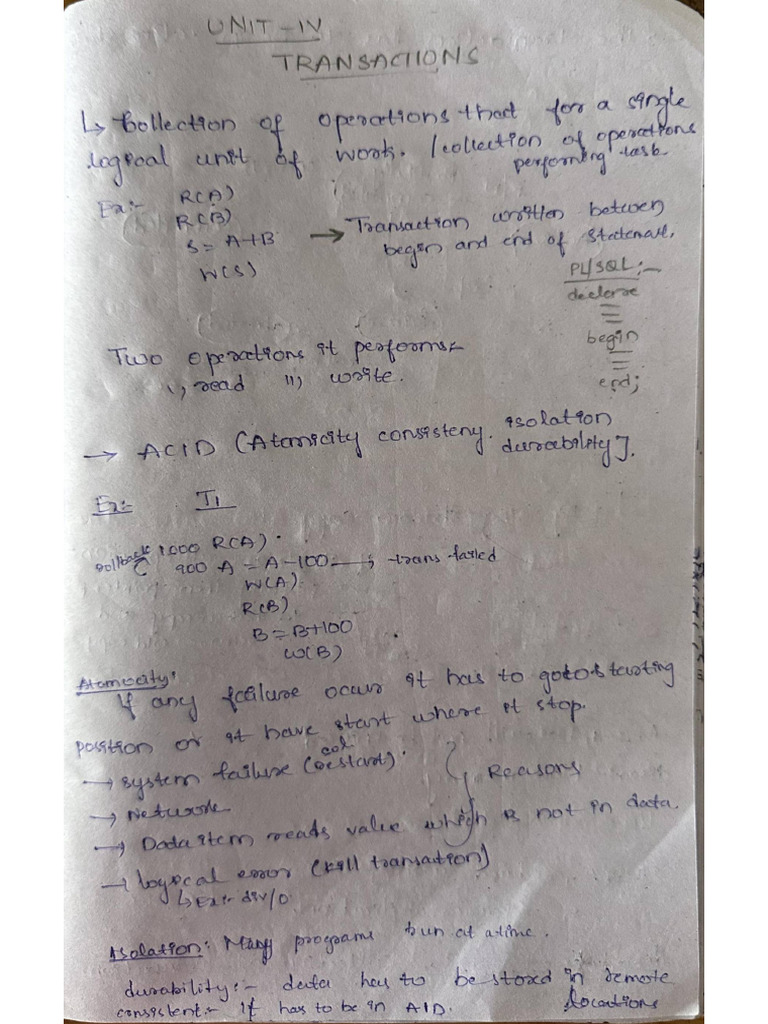 UNIT-IV
TRANSACTIONS
↳ Collection of operations that for a single
logical unit of work. / collection of operations
performing task
Ex:- R(A)
R(B)
S = A+B
W(S)
→ Transaction written between
begin and end of statement.
PL/SQL:-
declare
begin
end;
Two operations it performs:-
i, read ii, write.
→ ACID (Atomicity consisteny. isolation
durability].
Ex:- T1
1000 R(A).
rollback 900 A = A-100 → trans failed
W(A)
R(B)
B = B+100
W(B)
Atomocity:
If any failure occur it has to goto starting
position or it have start where it stop.
→ system failure (restart).
→ Network
Reasons
→ Data item reads value which is not in data.
→ logical error (kill transaction)
↳ Ex:- div/0
Isolation: Many programs run at a time.
durability:- data has to be stored in remote
locations
consistent:- if has to be in AID.